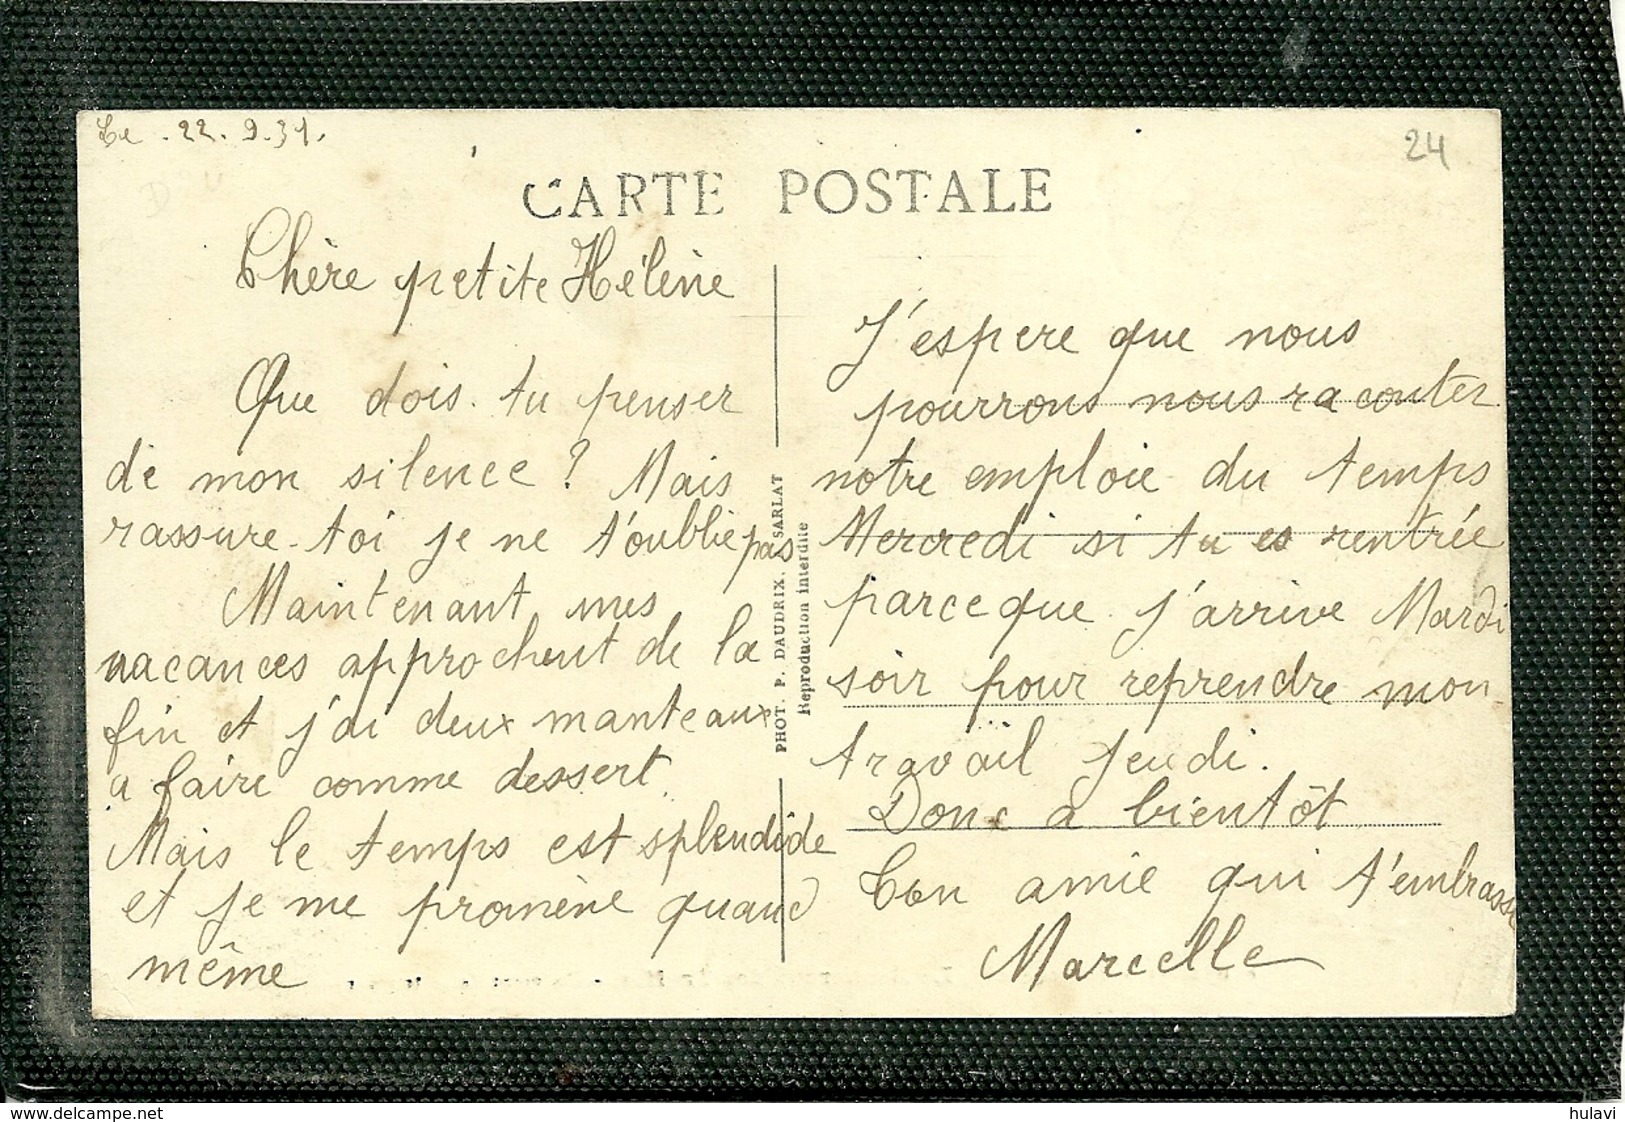 Le . 22. 9. 31.
24
CARTE POSTALE
Chère petite Hélène
Que dois-tu penser
de mon silence ? Mais
rassure-toi je ne t'oublie pas
Maintenant mes
vacances approchent de la
fin et j'ai deux manteaux
a faire comme dessert.
Mais le temps est splendide
et je me promène quand
même
PHOT. P. DAUDRIX. SARLAT
Reproduction interdite
J'espere que nous
pourrons nous raconter
notre emploie du temps
Mercredi si tu es rentrée
parceque j'arrive Mardi
soir pour reprendre mon
travail jeudi.
Donc a bientôt
Ton amie qui t'embrasse
Marcelle
www.delcampe.net
hulavi